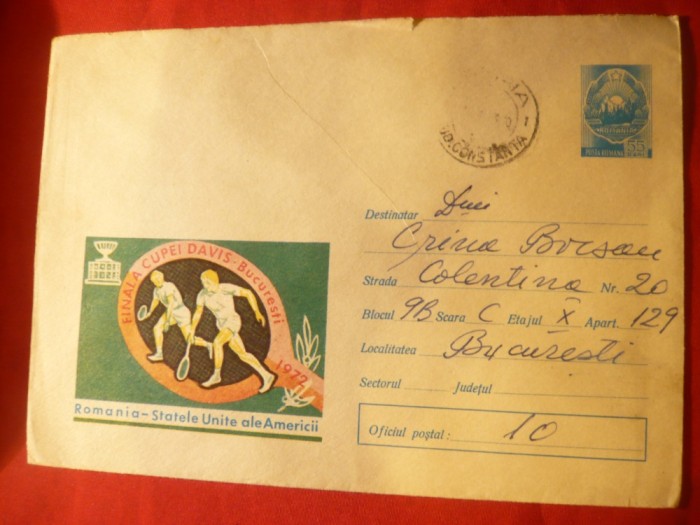 JUD. CONSTANTA
POSTA ROMANA 55
Destinatar
Crina Borsan
Strada Colentina Nr. 20
Blocul 9B Scara C Etajul X Apart. 129
Localitatea București
Sectorul Județul
Oficiul poștal: 10
FINALA CUPEI DAVIS-București
1972
Romania-Statele Unite ale Americii